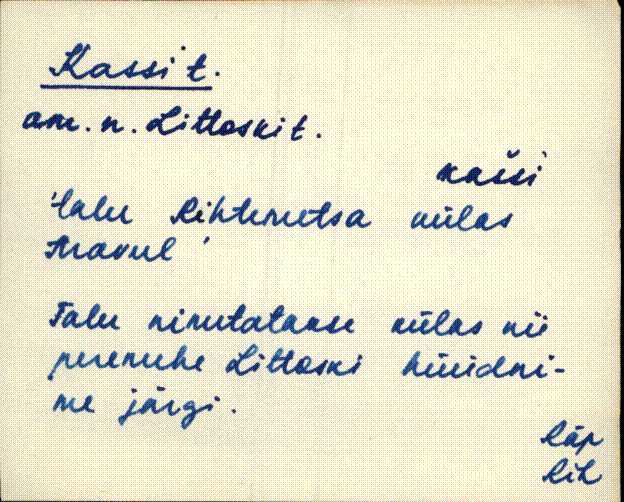 Kassi t.
am. n. Littoski t.
kašsi
'talu Rihtemetsa külas
Mravul'
Talu nimutatakse külas nii
peremehe Littoski hüüdni-
me järgi.
Räp
Rih